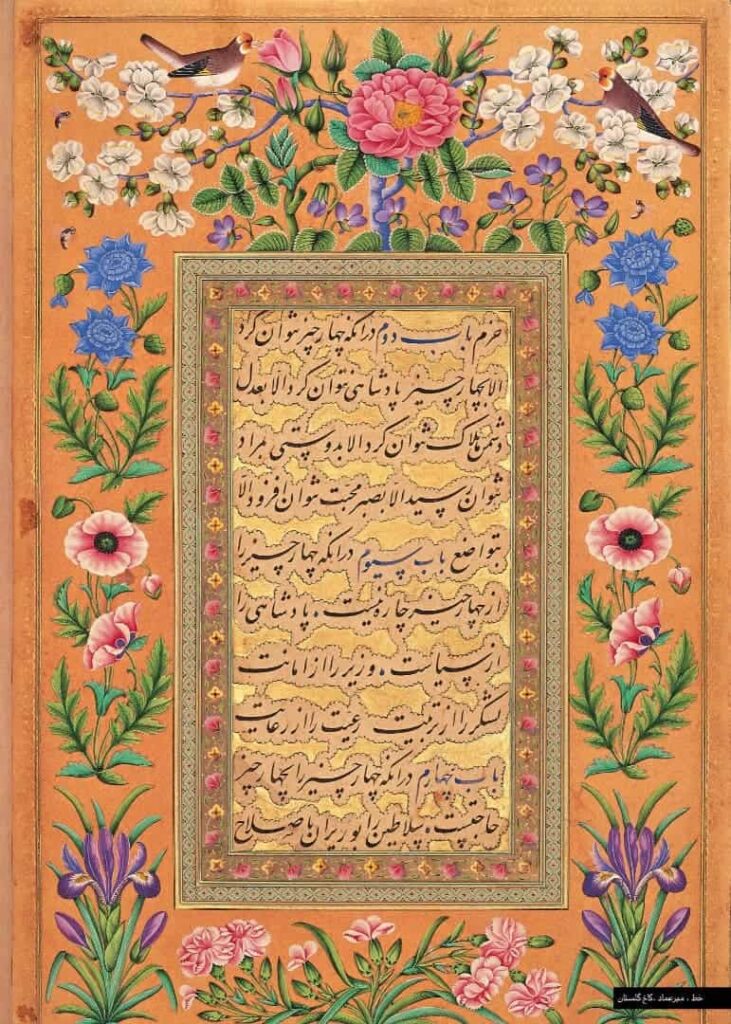 خرم باب دوم در آنکه چهار چیز نتوان کرد
الا بچهار چیز پادشاهی نتوان کرد الا بعدل
دشمن هلاک نتوان کرد الا بدوستی بمراد
نتوان رسید الا بصبر محبت نتوان افزود الا
بتواضع باب سیوم در آنکه چهار چیز را
از چهار چیز چاره نیست پادشاهی را
از سیاست و وزیر را از امانت
لشکر را از تربیت رعیت را از رعایت
باب چهارم در آنکه چهار چیز را بچهار چیز
حاجتست سلاطین را بوزیران با صلاح
خط ، میرعماد ،کاخ گلستان